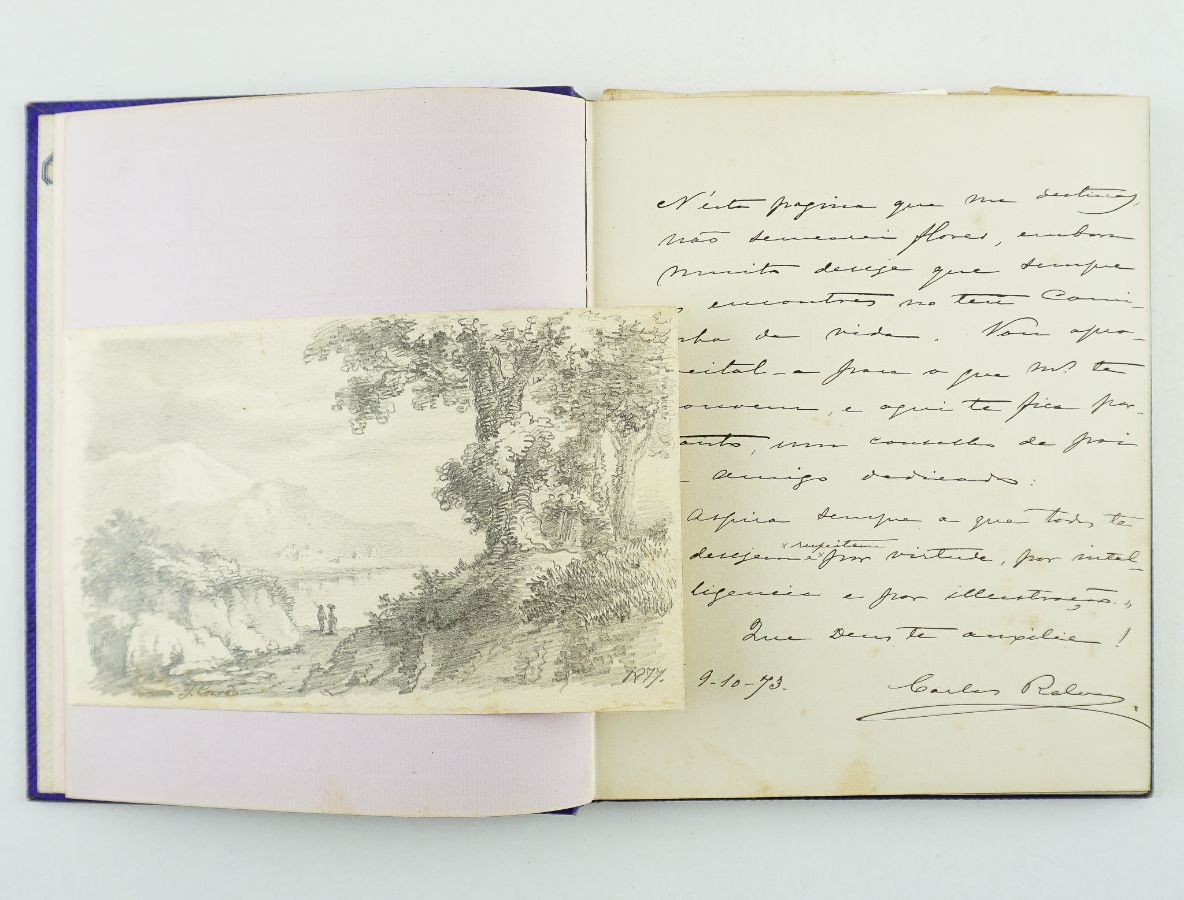 N'esta pagina que me destinas,
não semearei flores, embora
muito deseje que sempre
encontres no teu Cami-
nho da vida. Vou apro-
veital-a para o que m.s te
convem, e aqui te fica por-
tanto, um conselho de pai
amigo dedicado:
Aspira sempre a que todos te
× respeitem
desejem e × por virtude, por intel-
ligencia e por illustração.
Que Deus te auxilie!
9-10-73.
Carlos Relvas
J. Correa
1877.